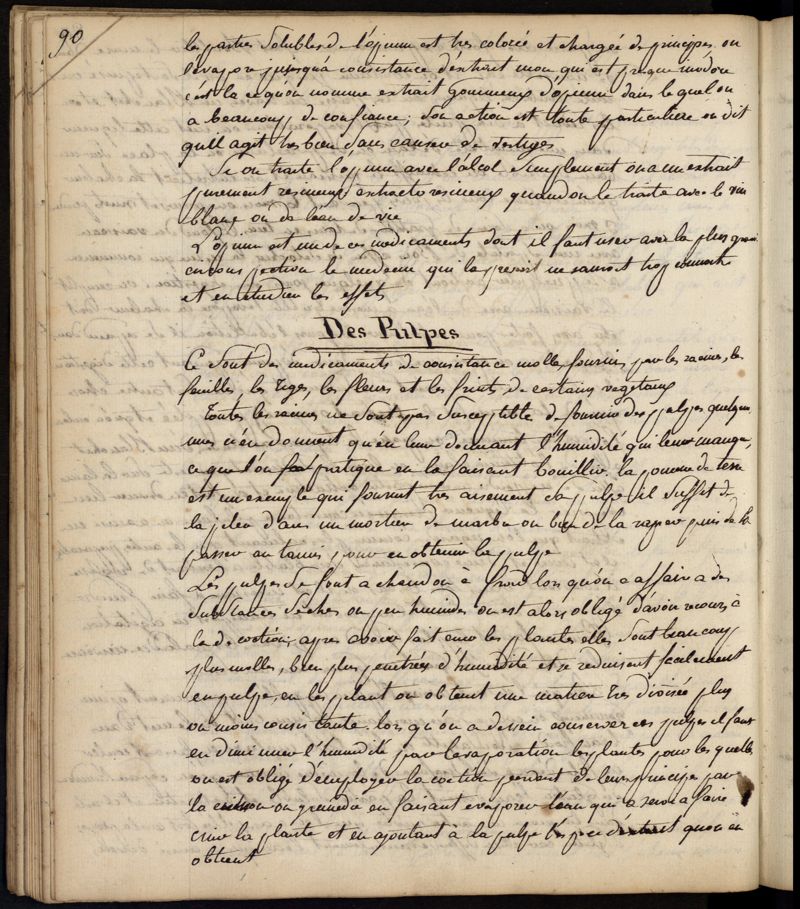 90
les parties solubles de l'opium est tres colorée et chargée de principes on
l'evapore jusqu'a consistance d'extrait mou qui est presque inodore
c'est la ce qu'on nomme extrait gommeux d'opium dans lequel on
a beaucoup de confiance, son action est toute particuliere on dit
qu'il agit tres bien sans causer de vertiges
Si on traite l'opium avec l'alcol simplement on a un extrait
purement resineux extracto resineux quand on le traite avec le vin
blanc ou de l'eau de vie
L'opium est un de ces medicaments dont il faut user avec la plus grande
circonspection le medecin qui la prescrit ne sauroit trop connoitre
et en etudier les effets
Des Pulpes
Ce sont des medicaments de consistance molle, fournis par les racines, les
feuilles, les tiges, les fleurs et les fruits de certains vegetaux
Toutes les racines ne sont pas susceptible de fournir des pulpes quelques
unes n'en donnent qu'en leur donnant l'humidité qui leur manque,
ce que l'on pratique en la faisant bouillir. la pomme de terre
est un exemple qui fournit tres aisement sa pulpe il suffit de
la piler dans un mortier de marbre ou bien de la raper puis de la
passer au tamis pour en obtenir la pulpe
Les pulpes se font a chaud ou à froid lors qu'on a affaire a des
substances seches ou peu humides on est alors obligé d'avoir recours à
la decoction, apres avoir fait cuire les plantes elles sont beaucoup
plus molles, bien plus penetrées d'humidité et se reduisent facilement
en pulpe, en les pilant on obtient une matiere tres divisée plus
ou moins consistante. lors qu'on a dessein conserver ces pulpes il faut
en diminuer l'humidité par l'evaporation les plantes pour les quelles
on est obligé d'employer la coction perdent de leur principe par
la on y remedie en faisant evaporer l'eau qui a servi a faire
cuire la plante et en ajoutant à la pulpe d'extrait qu'on en
obtient